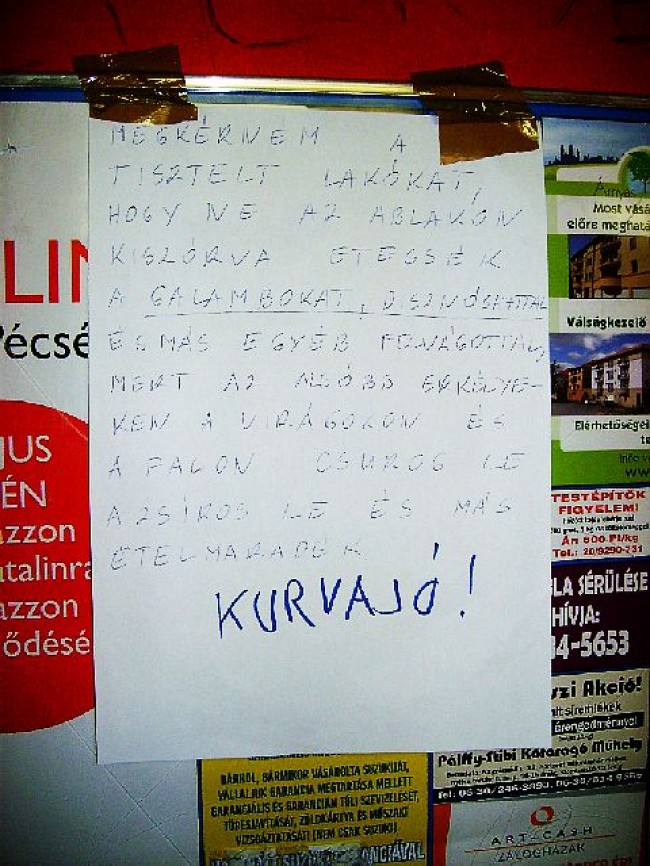 MEGKÉRNÉM A
TISZTELT LAKÓKAT,
HOGY NE AZ ABLAKON
KISZÓRVA ETESSÉK
A GALAMBOKAT, DISZNÓSAJTTAL
ÉS MÁS EGYÉB FELVÁGOTTAL,
MERT AZ ALSÓBB ERKÉLYE-
KEN A VIRÁGOKON ÉS
A FALON CSUROG LE
A ZSÍROS LÉ ÉS MÁS
ÉTELMARADÉK
KURVAJÓ!
LIN
Pécsé
JUS
ÉN
azzon
utalinra
azzon
ődésé
Árnyas
Most vásá
előre meghatá
Válságkezelő
Elérhetőségei
TESTÉPÍTŐK
FIGYELEM!
Ár: 600 Ft/kg
Tel.: 20/9290-731
LA SÉRÜLÉSE
HÍVJA:
14-5653
szi Akció!
árengedménnyel
Pálffy-Stibi Kőfaragó Műhely
BÁRHOL, BÁRMIKOR VÁSÁROLTA SUZUKIJÁT,
VÁLLALJUK GARANCIA MEGTARTÁSA MELLETT
GARANCIÁLIS ÉS GARANCIÁN TÚLI SZERVIZELÉSÉT,
TÖRÉSJAVÍTÁSÁT, ZÖLDKÁRTYA ÉS MŰSZAKI
VIZSGÁZTATÁSÁT! (NEM CSAK SUZUKI)
ANCIÁVAL
ART-CASH
ZÁLOGHÁZAK